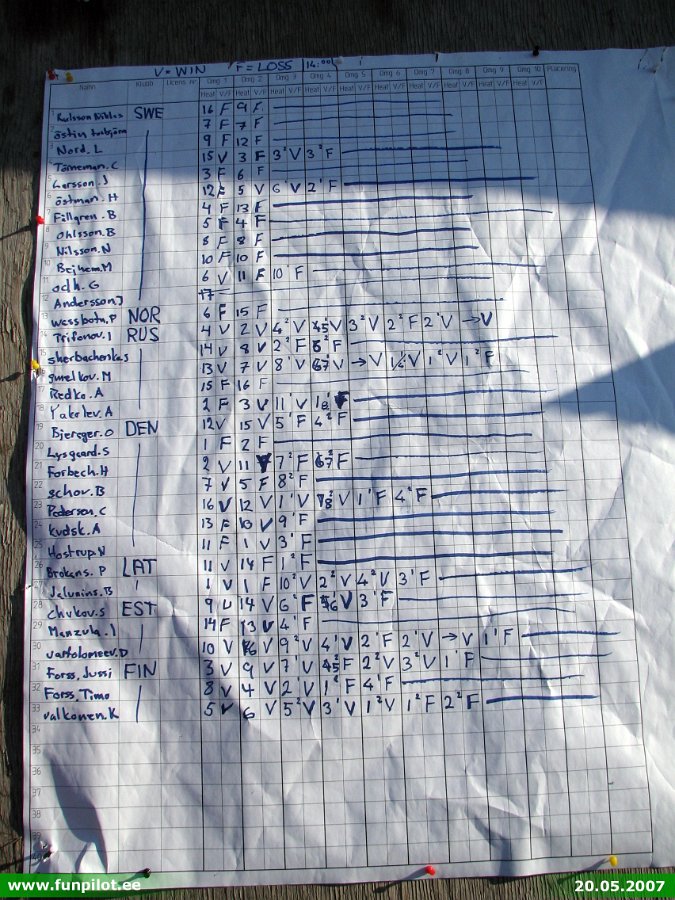 V = WIN F = LOSS 14:00
Namn Klubb Licens nr Omg 1 Omg 2 Omg 3 Omg 4 Omg 5 Omg 6 Omg 7 Omg 8 Omg 9 Omg 10 Placering
Heat V/F Heat V/F Heat V/F Heat V/F Heat V/F Heat V/F Heat V/F Heat V/F Heat V/F Heat V/F
1 Karlsson Niklas SWE 16 F 9 F
2 östin torbjörn 7 F 7 F
3 Nord. L 9 F 12 F
4 Törneman. C 15 V 3 F 3² V 3² F
5 Larsson. J 3 F 6 F
6 östman. H 12 F 5 V 6² V 2² F
7 Fillgren. B 4 F 13 F
8 Ohlsson. B 5 F 4 F
9 Nilsson. N 8 F 8 F
10 Bejhem. M 10 F 10 F
11 odh. G 6 V 11 F 10² F
12 Andersson J 17
13 wessbotn. P NOR 6 F 15 F
14 Trifonov. I RUS 4 V 2 V 4² V V 3² V 2² F 2² V → V
15 sherbachenko. s 14 V 8 V 2² F F
16 smelkov. M 13 V 7 V 8¹ V V → V V 1² V 1² F
17 Redko. A 15 F 16 F
18 Yakolev. A 2 F 3 V 11¹ V
19 Bjerager. O DEN 12 V 15 V 5¹ F 4² F
20 Lysgaard. S 1 F 2 F
21 Forbech. H 2 V 11 7² F F
22 schou. B 7 V 5 F 8² F
23 Pederson. C 16 V 12 V 1¹ V V 1¹ F 4² F
24 Kudsk. A 13 F 10 V 9¹ F
25 Hostrup. N 11 F 1 V 3¹ F
26 Brokans. P LAT 11 V 14 F 1² F
27 Jalunins. B 1 V 1 F 10¹ V 2² V 4² V 3¹ F
28 chukov. S EST 9 V 14 V 6² F V 3¹ F
29 Manzula. I 14 F 13 V 4¹ F
30 vartolomeev. D 10 V 16 V 9² V 4¹ V 2² F 2¹ V → V 1¹ F
31 Forss, Jussi FIN 3 V 9 V 7¹ V 45 F 2² V 3² V 1¹ F
32 Forss, Timo 8 V 4 V 2¹ V 1² F 4¹ F
33 valkonen. K 5 V 6 5² V 3¹ V 1² V 1² F 2² F
34
35
36
37
38
39
www.funpilot.ee 20.05.2007